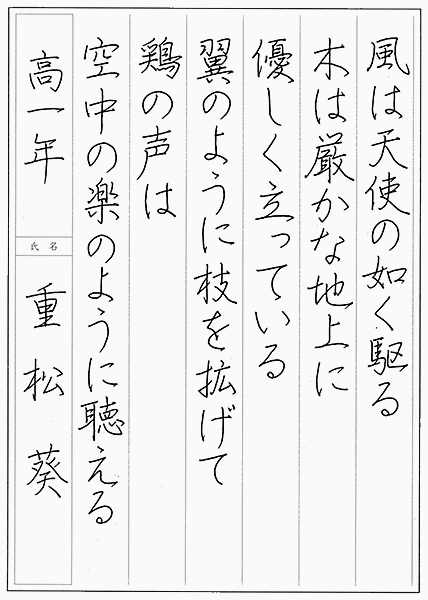 風は天使の如く駆る
木は厳かな地上に
優しく立っている
翼のように枝を拡げて
鶏の声は
空中の楽のように聴える
高一年
氏名
重松葵